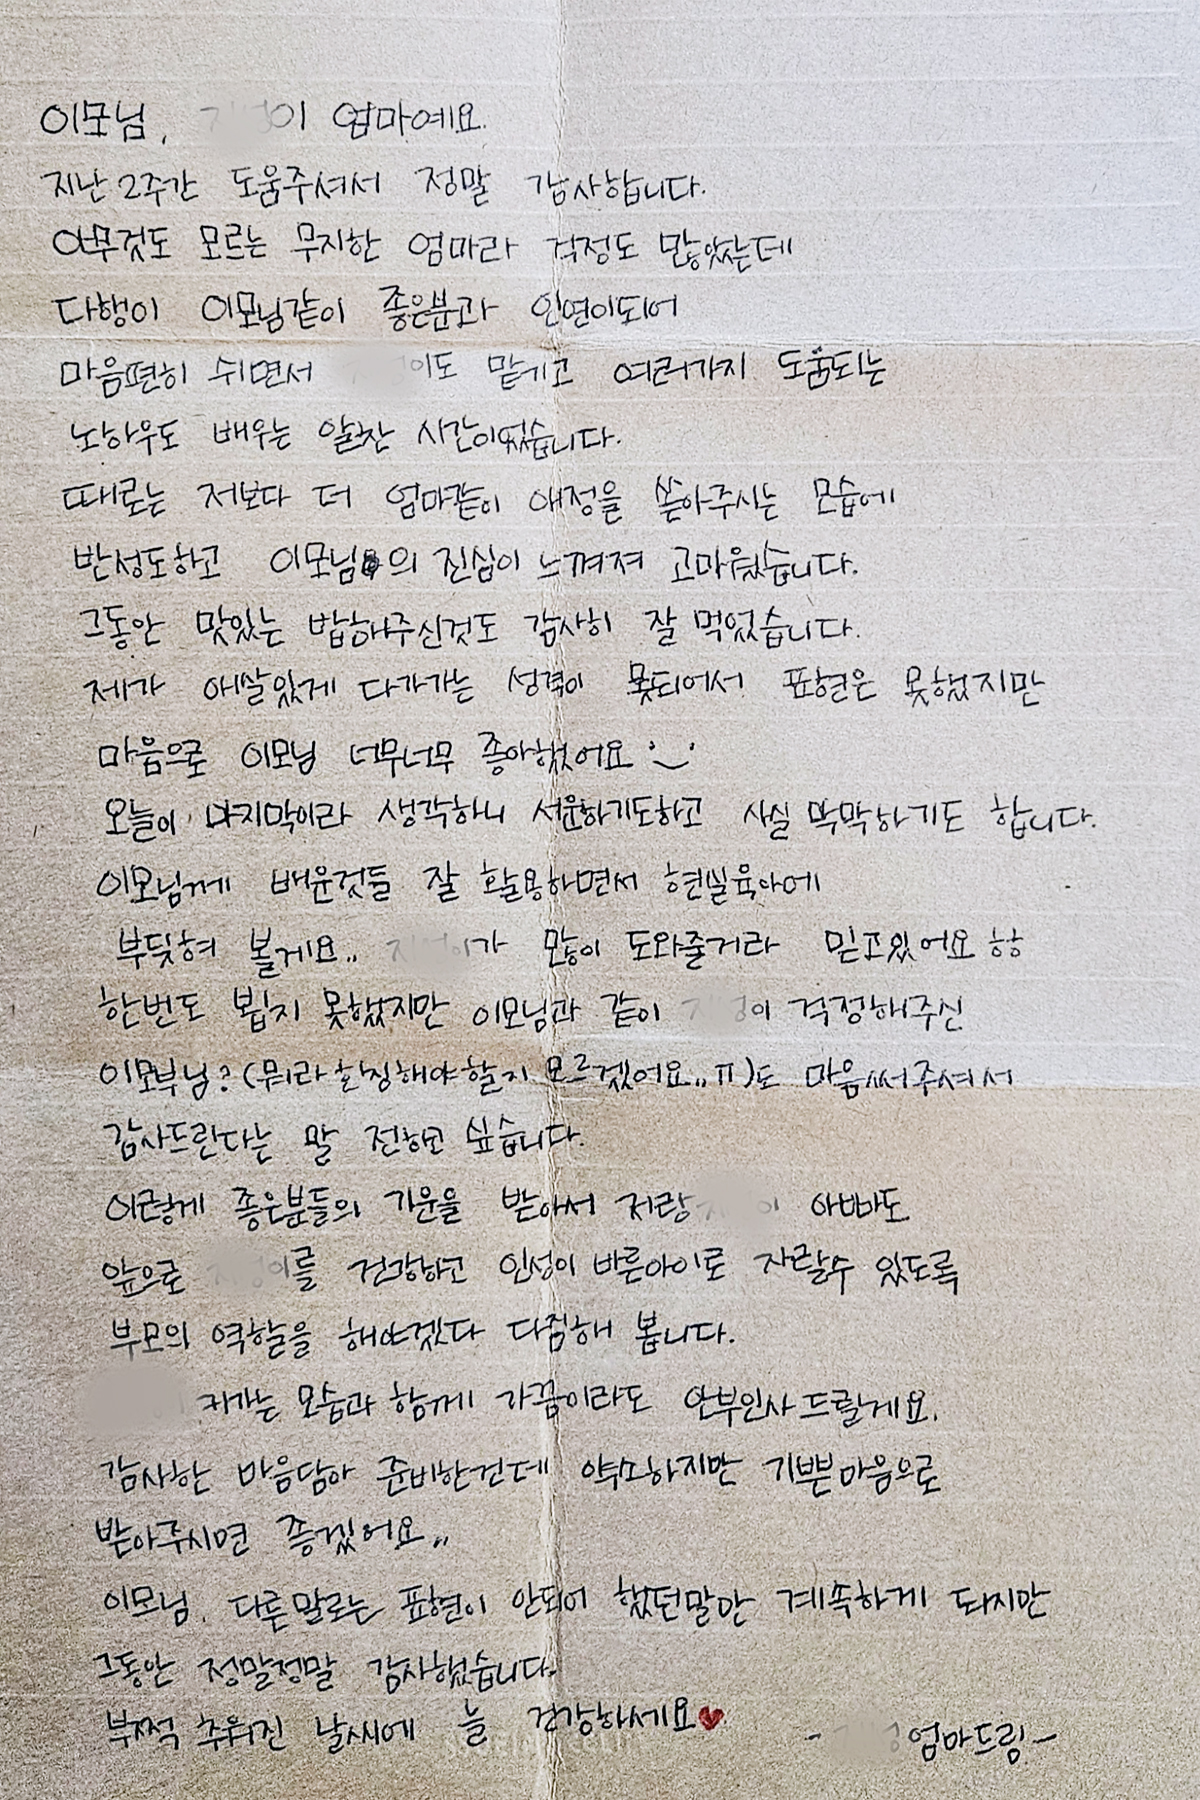 이모님, 이 엄마예요.
지난 2주간 도움주셔서 정말 감사합니다.
아무것도 모르는 무지한 엄마라 걱정도 많았는데
다행이 이모님같이 좋은분과 인연이되어
마음편히 쉬면서 이도 맡기고 여러가지 도움되는
노하우도 배우는 알찬 시간이었습니다.
때로는 저보다 더 엄마같이 애정을 쏟아주시는 모습에
반성도하고 이모님의 진심이 느껴져 고마웠습니다.
그동안 맛있는 밥해주신것도 감사히 잘 먹었습니다.
제가 애살있게 다가가는 성격이 못되어서 표현은 못했지만
마음으로 이모님 너무너무 좋아했어요
오늘이 마지막이라 생각하니 서운하기도하고 사실 막막하기도 합니다.
이모님께 배운것들 잘 활용하면서 현실육아에
부딪혀 볼게요.. 가 많이 도와줄거라 믿고있어요 ㅎㅎ
한번도 뵙지 못했지만 이모님과 같이 이 걱정해주신
이모부님? (뭐라 호칭해야할지 모르겠어요.. ㅠ)도 마음써주셔서
감사드린다는 말 전하고 싶습니다.
이렇게 좋은분들의 기운을 받아서 저랑 이 아빠도
앞으로 이를 건강하고 인성이 바른아이로 자랄수 있도록
부모의 역할을 해야겠다 다짐해 봅니다.
커가는 모습과 함께 가끔이라도 안부인사 드릴게요.
감사한 마음담아 준비한건데 약소하지만 기쁜마음으로
받아주시면 좋겠어요..
이모님. 다른말로는 표현이 안되어 했던말만 계속하게 되지만
그동안 정말정말 감사했습니다.
부쩍 추워진 날씨에 늘 건강하세요♥
- 엄마드림-